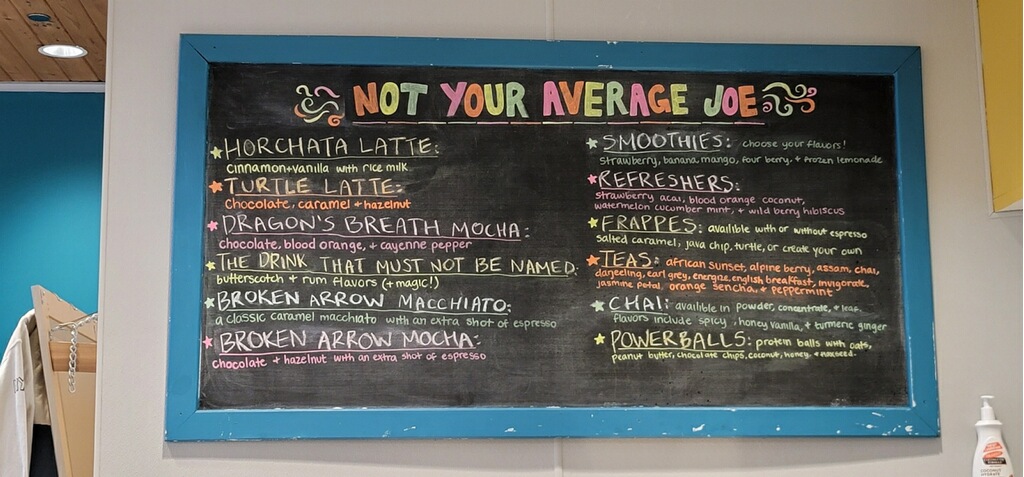 NOT YOUR AVERAGE JOE
HORCHATA LATTE:
cinnamon+vanilla with rice milk
TURTLE LATTE:
chocolate, caramel + hazelnut
DRAGON'S BREATH MOCHA:
chocolate, blood orange, + cayenne pepper
THE DRINK THAT MUST NOT BE NAMED:
butterscotch + rum flavors (+magic!)
BROKEN ARROW MACCHIATO:
a classic caramel macchiato with an extra shot of espresso
BROKEN ARROW MOCHA:
chocolate + hazelnut with an extra shot of espresso
SMOOTHIES: choose your flavors!
strawberry, banana, mango, four berry, + frozen lemonade
REFRESHERS:
strawberry acai, blood orange coconut,
watermelon cucumber mint, + wild berry hibiscus
FRAPPES: availible with or without espresso
salted caramel, java chip, turtle, or create your own
TEAS: african sunset, alpine berry, assam, chai,
darjeeling, earl grey, energize, english breakfast, invigorate,
jasmine petal, orange sencha, + peppermint
CHAI: availible in powder, concentrate, + leaf.
flavors include spicy, honey vanilla, + turmeric ginger
POWERBALLS: protein balls with oats,
peanut butter, chocolate chips, coconut, honey, + flaxseed.